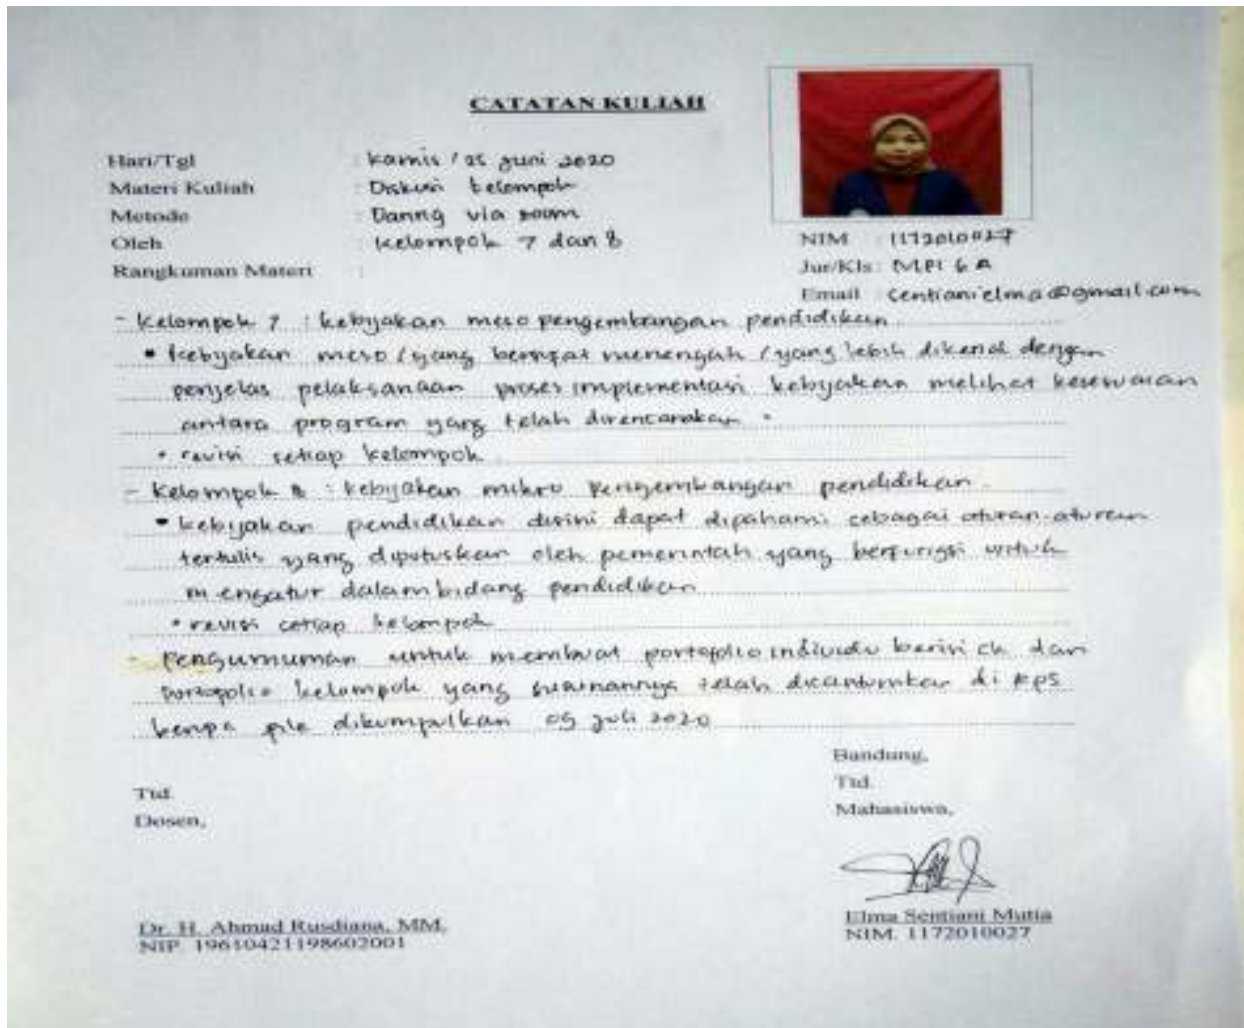 CATATAN KULIAH
Hari/Tgl : Kamis / 25 Juni 2020
Materi Kuliah : Diskusi kelompok
Metode : Daring via zoom
Oleh : Kelompok 7 dan 8
Rangkuman Materi :
NIM : 1172010027
Jur/Kls : MPI 6 A
Email : Sentianielma@gmail.com
- Kelompok 7 : kebijakan meso pengembangan pendidikan
• kebijakan meso (yang bersifat menengah / yang lebih dikenal dengan
penjelas pelaksanaan proses implementasi kebijakan melihat kesesuaian
antara program yang telah direncanakan.
• revisi setiap kelompok
- Kelompok 8 : kebijakan mikro pengembangan pendidikan.
• kebijakan pendidikan disini dapat dipahami sebagai aturan-aturan
tertulis yang diputuskan oleh pemerintah yang berfungsi untuk
mengatur dalam bidang pendidikan
• revisi setiap kelompok
- Pengumuman untuk membuat portofolio individu berisi dan
portofolio kelompok yang telah dicantumkan di RPS
berupa file dikumpulkan 05 Juli 2020
Bandung,
Ttd.
Mahasiswa,
Elma Sentiani Mutia
NIM. 1172010027
Ttd.
Dosen,
Dr. H. Ahmad Rusdiana, MM.
NIP. 19610421198602001